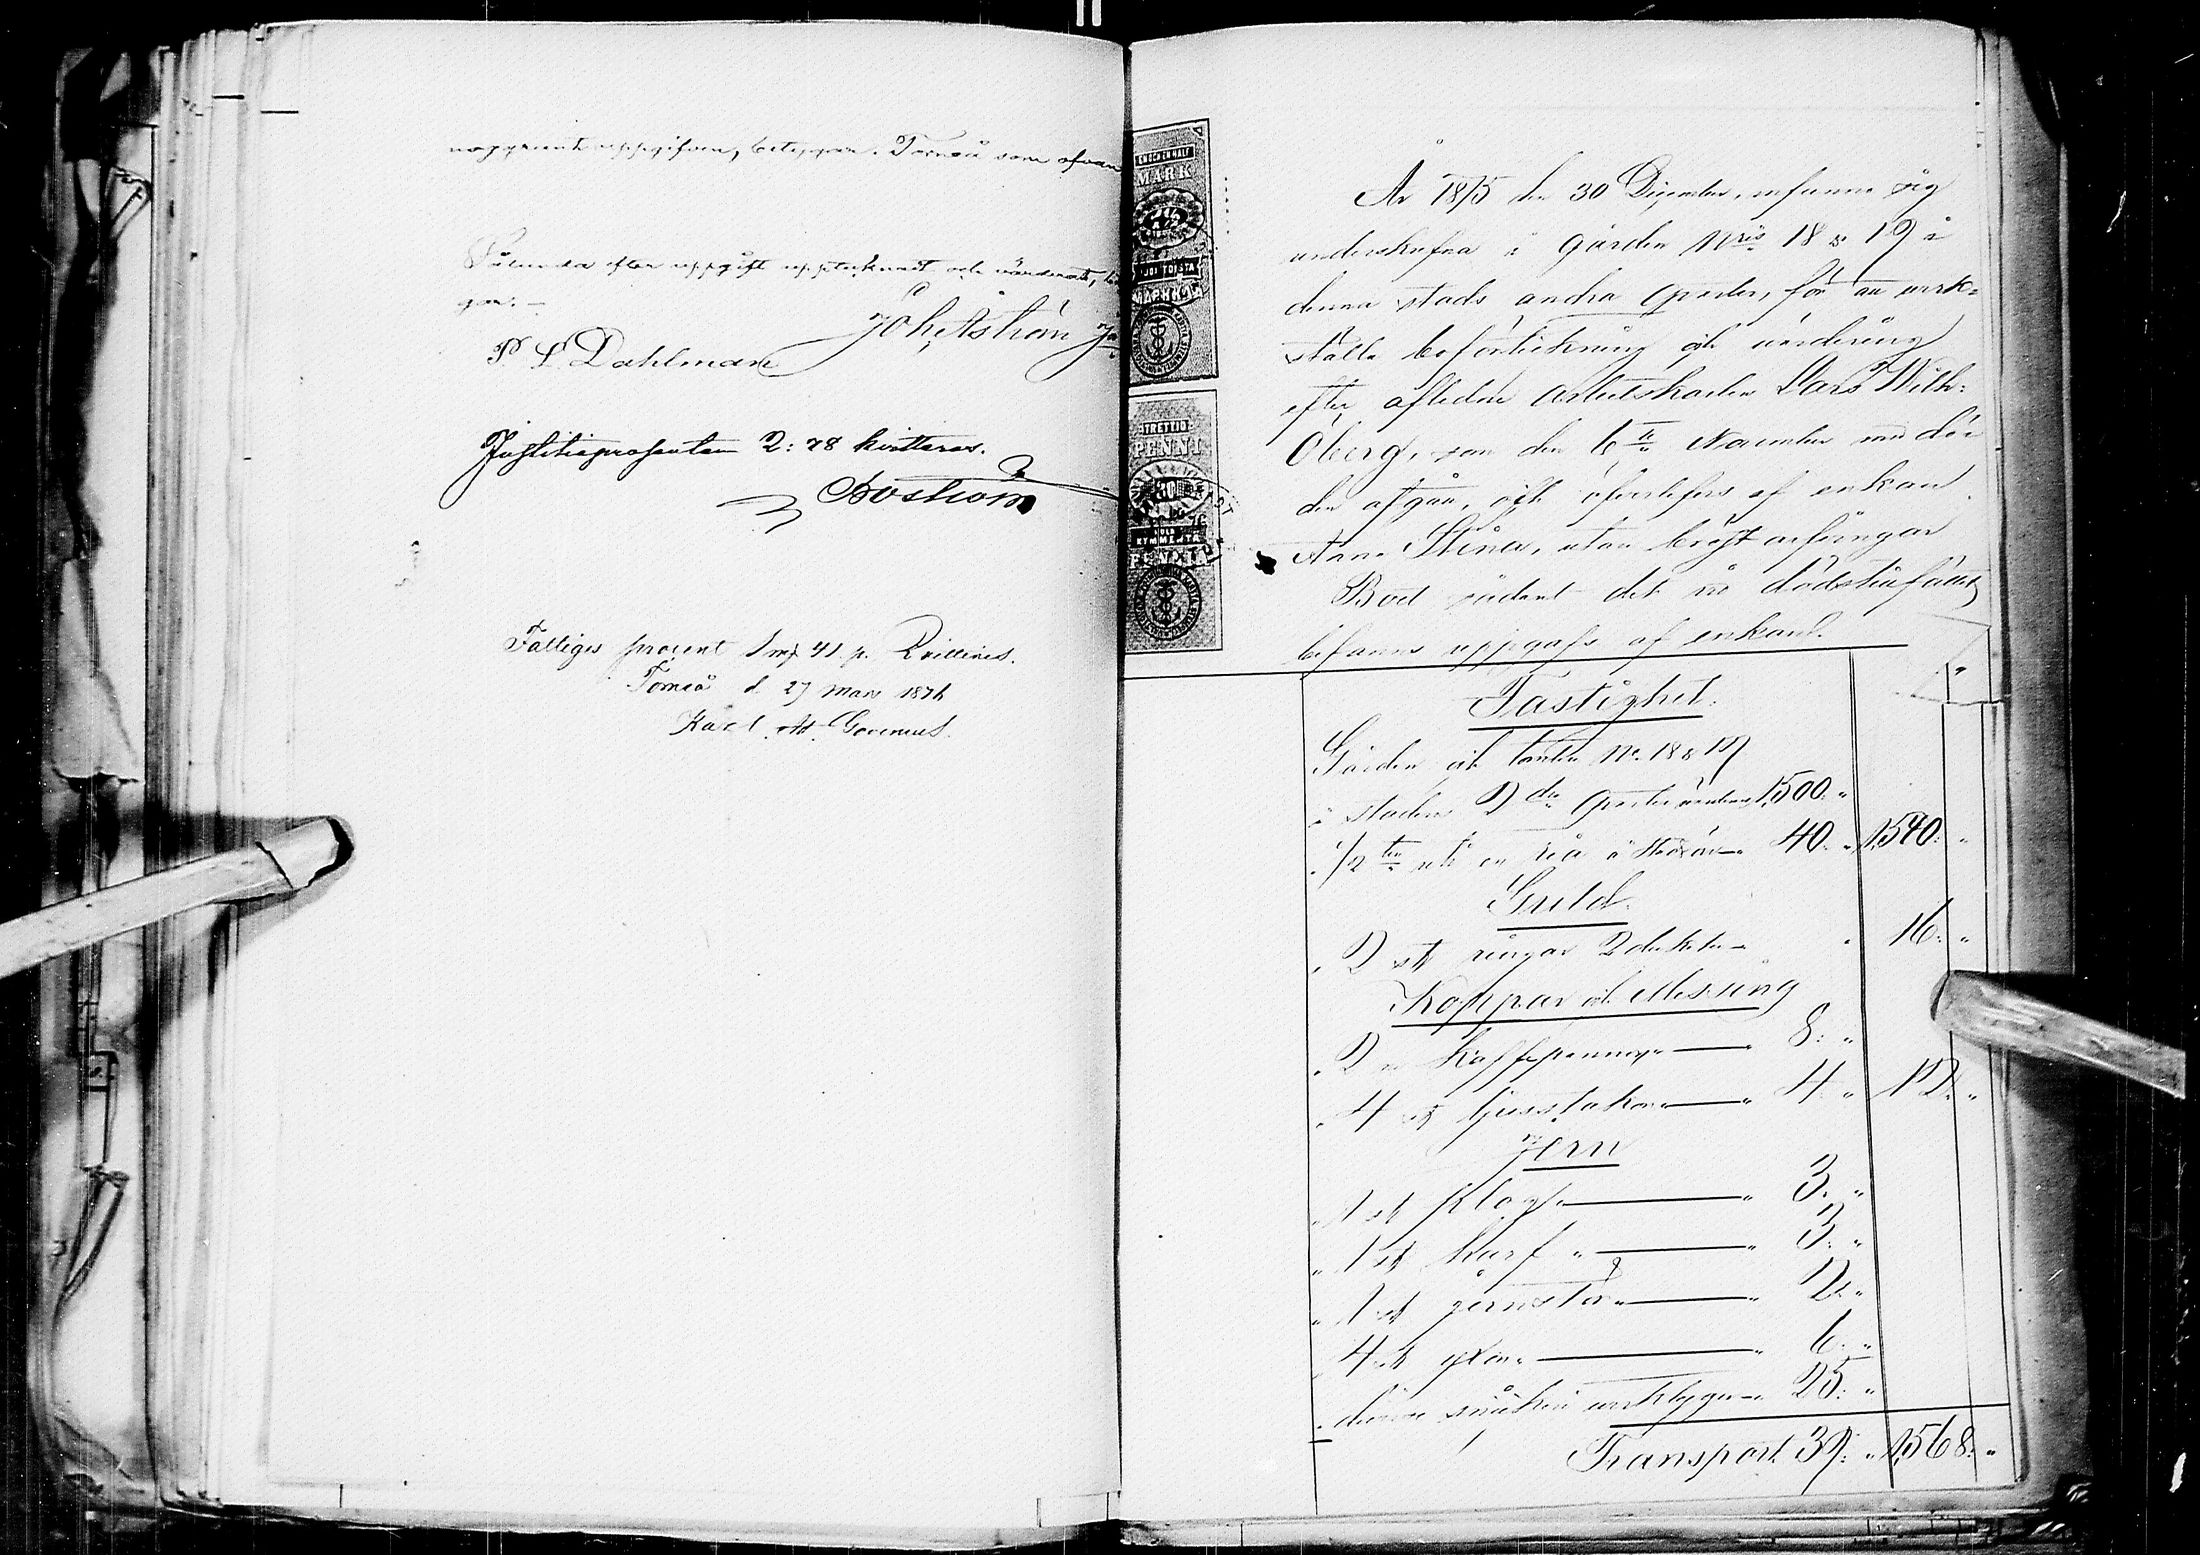 noggrant uppgifven, betygar. Torneå som ofvan
Sålunda efter uppgift upptecknadt och värderadt, bety
gar. —
P L Dahlman Joh. Åström
Justitiæprosenten 2: 78 kvitteras.
Boström
Fattiges procent 1 mk 41 p. Qvitteras.
Torneå d 27 Mars 1876
Karl Ad. Govenius
EN OCH EN HALF
MARK
1½
PUOLI TOISTA
TRETTIO
PENNI
KOLME
KYMMENTÄ
År 1875 den 30 December, infunno sig
underskrifna i gården Nris 18 & 19 i
denna stads andra qvarter, för att verk=
ställa bouppteckning och värdering
efter aflidne arbetskarlen Lars Wilh:
Öberg, som den 6te November med dö=
den afgått, och efterlefves af enkan
Anna Stina, utan bröstarfvingar
Boet sådant det vid dödstillfället
befanns uppgafs af enkan.
Fastighet.
Gården och tomten No 18 & 19
i stadens 2dra qvarter värderas 1,500: "
1/2 en ria å 40. " 1,540: "
Guld.
2 st ringar 2 dukater " 16: "
Koppar och Messing
2 st kaffepannor — " 8: "
4 st ljusstakar — " 4: " 12: "
Jern
1 st plog — " 3: "
1 st harf " — " 3: "
1 st jernstör — " 2: "
4 st yxor — " 6: "
diverse snickeri verktyger " 25: "
Transport 39: " 1,568: "